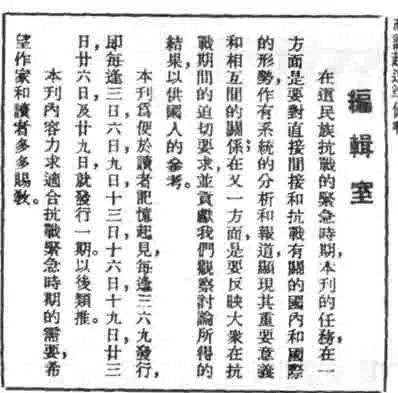 編輯室
在這民族抗戰的緊急時期,本刊的任務,在一
方面是要對直接間接和抗戰有關的國內和國際
的形勢,作有系統的分析和報道,顯現其重要意義
和相互間的關係;在又一方面,是要反映大衆在抗
戰期間的迫切要求,並貢獻我們觀察討論所得的
結果,以供國人的參考。
本刊爲便於讀者記憶起見,每逢三六九發行,
即每逢三日六日九日十三日十六日十九日廿三
日,廿六日,及廿九日,就發行一期。以後類推。
本刊內容力求適合抗戰緊急時期的需要,希
望作家和讀者多多賜敎。